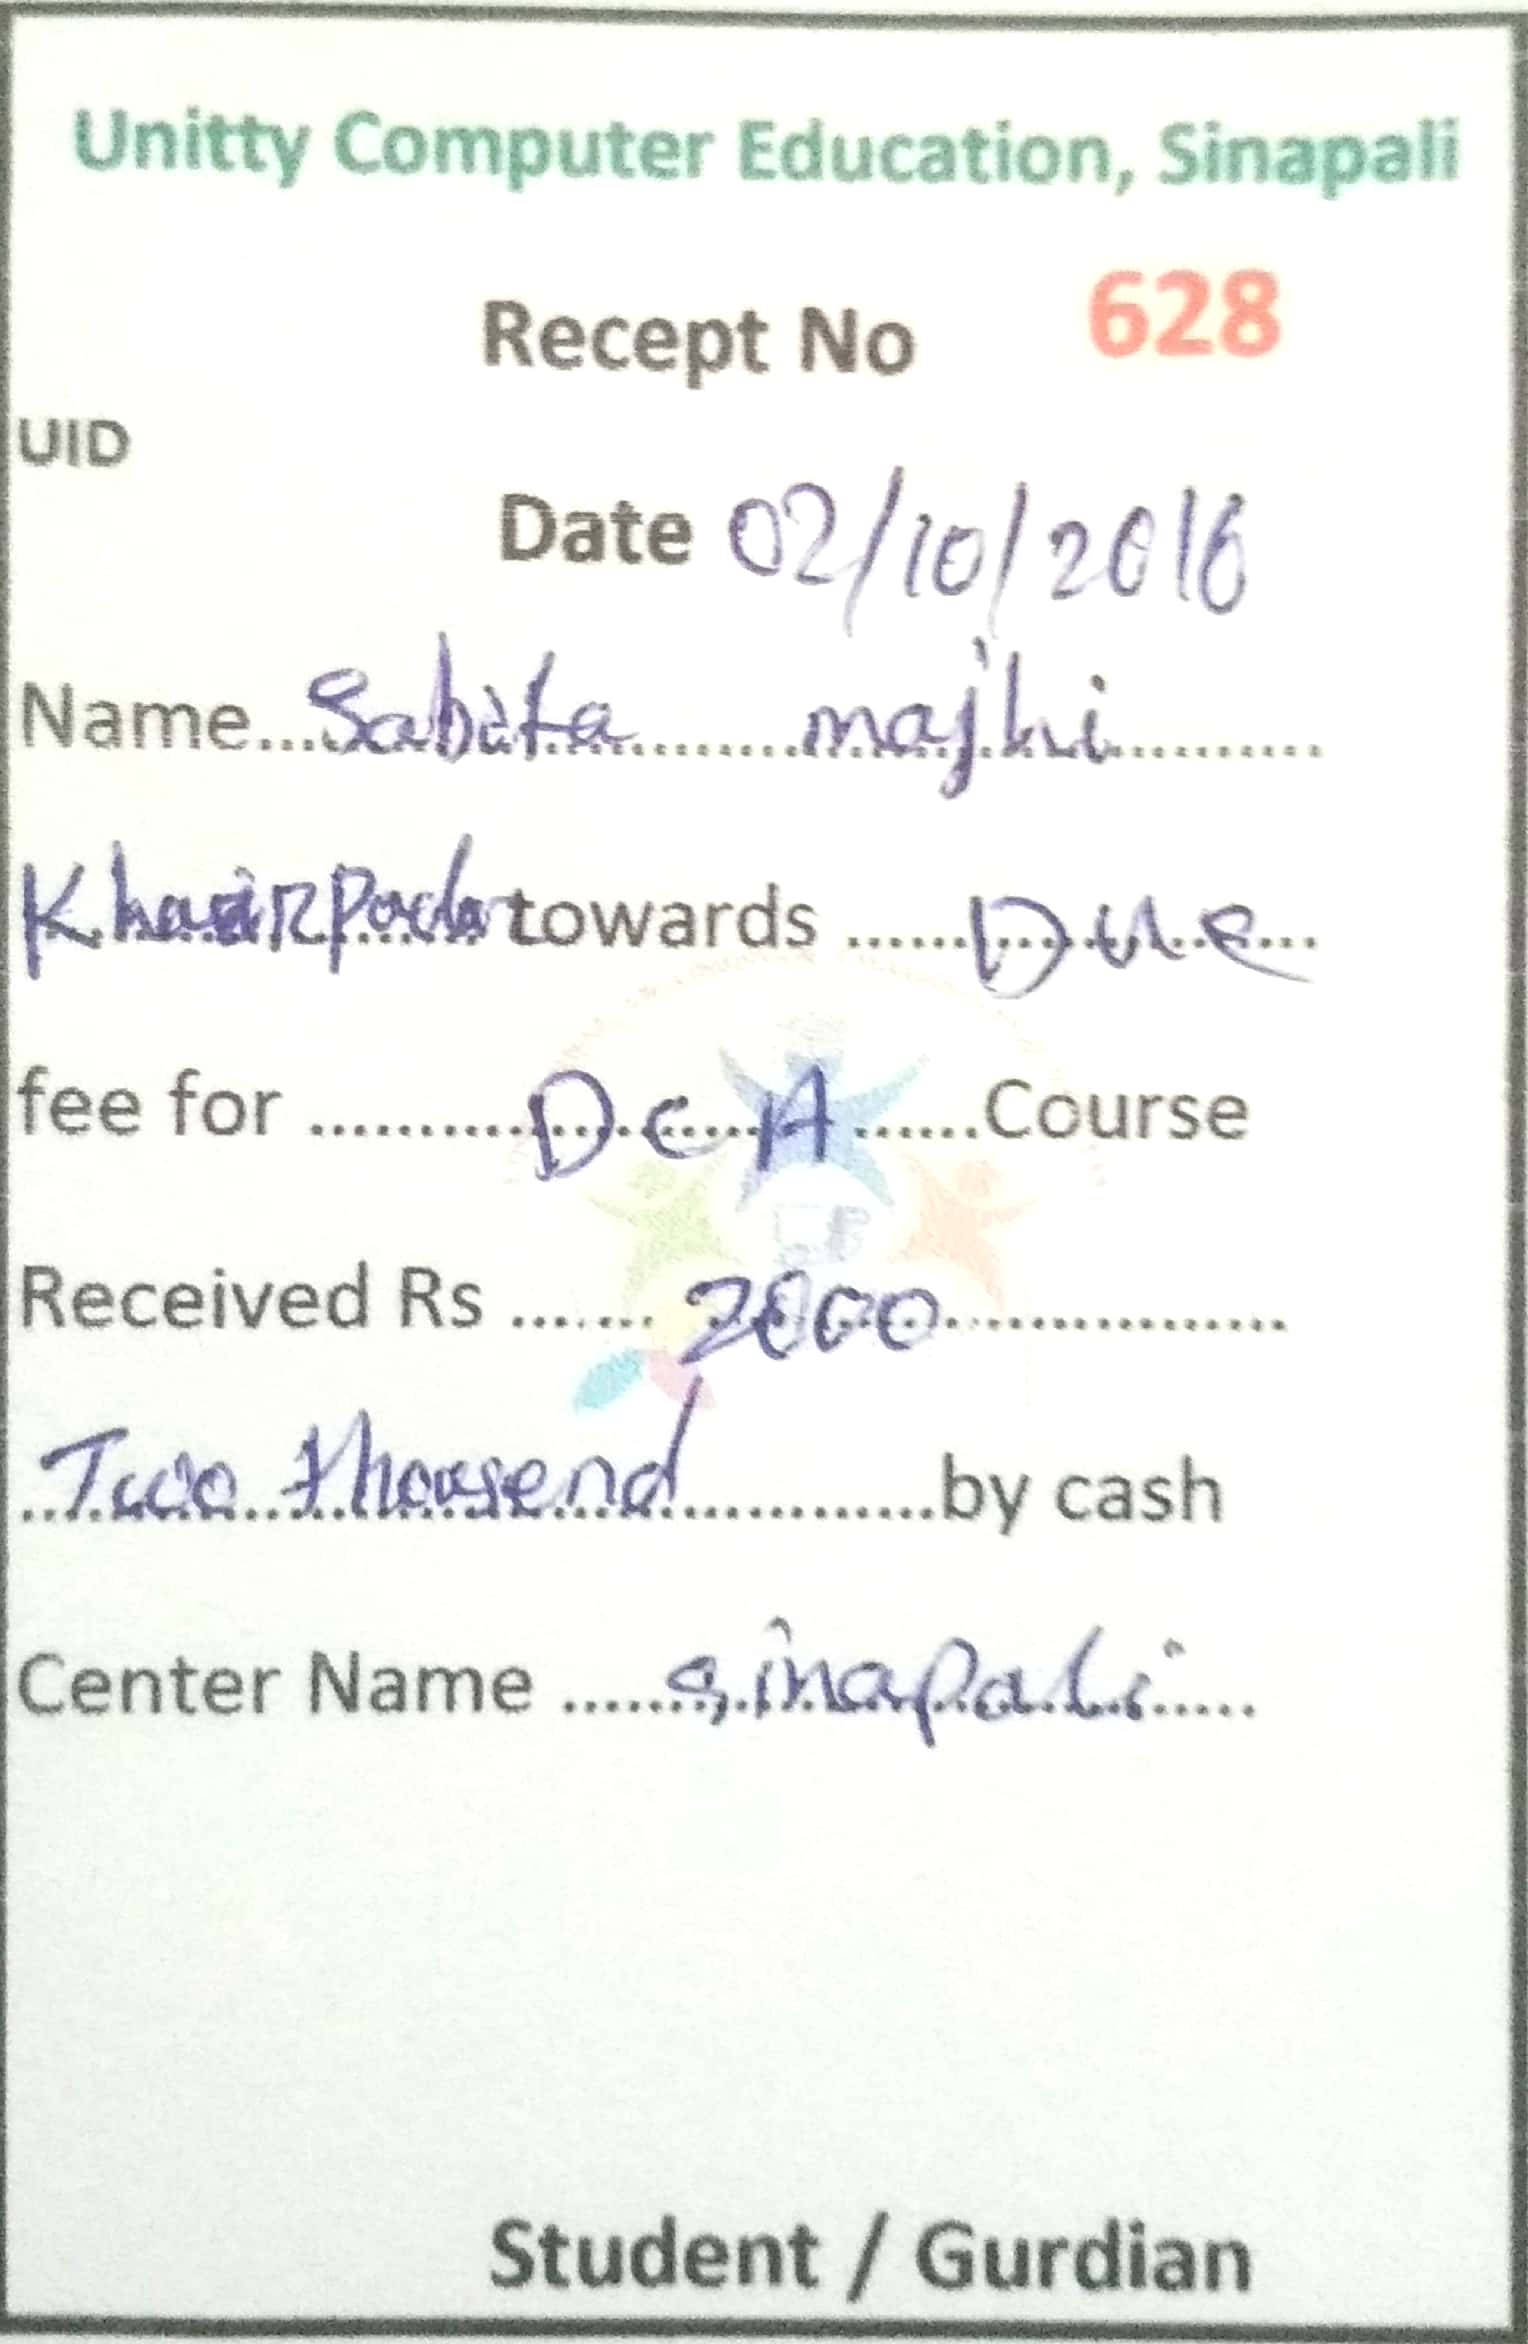 Unitty Computer Education, Sinapali
Recept No 628
UID
Date 02/10/2016
Name...Sabita majhi
towards ...... Due
fee for ........... DCA ....... Course
Received Rs ....... 2000 ..................
Two thousend .............by cash
Center Name ...... Sinapali .....
Student / Gurdian